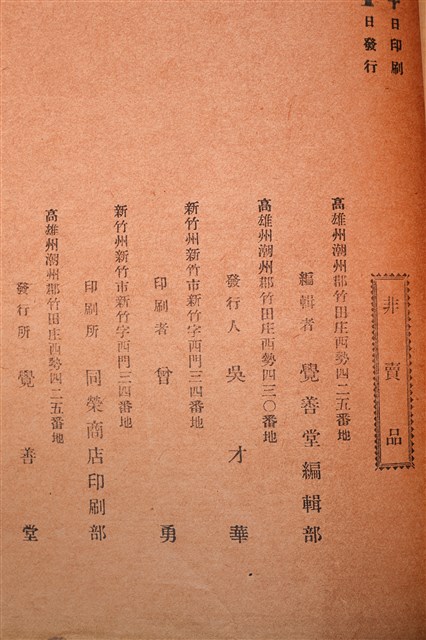 日印刷
日發行
非賣品
高雄州潮州郡竹田庄西勢四二五番地
編輯者 覺善堂編輯部
高雄州潮州郡竹田庄西勢四三〇番地
發行人 吳才華
新竹州新竹市新竹字西門三四番地
印刷者 曾勇
新竹州新竹市新竹字西門三四番地
印刷所 同榮商店印刷部
高雄州潮州郡竹田庄西勢四二五番地
發行所 覺善堂